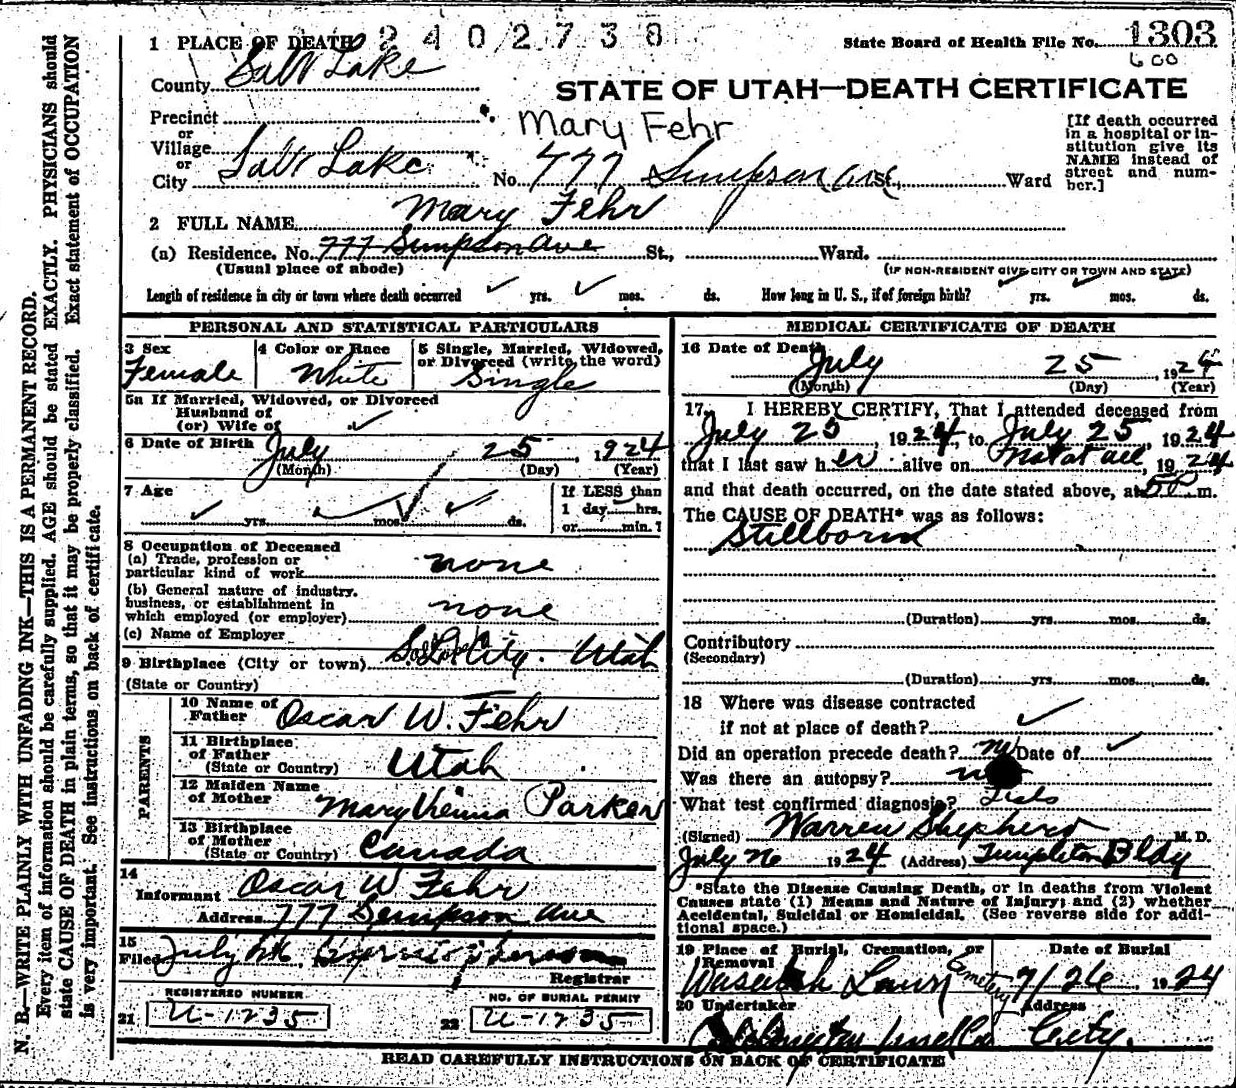 1 PLACE OF DEATH 2402738
State Board of Health File No. 1303
600
County Salt Lake
STATE OF UTAH—DEATH CERTIFICATE
Precinct
or
Village
or
City Salt Lake
Mary Fehr
No. 777 Simpson Ave St., Ward
[If death occurred
in a hospital or in-
stitution give its
NAME instead of
street and num-
ber.]
2 FULL NAME Mary Fehr
(a) Residence. No. 777 Simpson Ave St., Ward.
(Usual place of abode)
(IF NON-RESIDENT GIVE CITY OR TOWN AND STATE)
Length of residence in city or town where death occurred yrs. mos. ds. How long in U. S., if of foreign birth? yrs. mos. ds.
PERSONAL AND STATISTICAL PARTICULARS
3 Sex
Female
4 Color or Race
White
5 Single, Married, Widowed,
or Divorced (write the word)
Single
5a If Married, Widowed, or Divorced
Husband of
(or) Wife of
6 Date of Birth July 25, 1924
(Month) (Day) (Year)
7 Age
yrs. mos. ds.
If LESS than
1 day hrs.
or min.?
8 Occupation of Deceased
(a) Trade, profession or
particular kind of work none
(b) General nature of industry,
business, or establishment in
which employed (or employer) none
(c) Name of Employer
9 Birthplace (City or town) S. Lake City. Utah
(State or Country)
PARENTS
10 Name of
Father Oscar W. Fehr
11 Birthplace
of Father
(State or Country) Utah
12 Maiden Name
of Mother Mary Vienna Parker
13 Birthplace
of Mother
(State or Country) Canada
14
Informant Oscar W Fehr
Address 777 Simpson Ave
15
Filed July
Registrar
REGISTERED NUMBER
21 U-1235
NO. OF BURIAL PERMIT
22 U-1235
MEDICAL CERTIFICATE OF DEATH
16 Date of Death July 25, 1924
(Month) (Day) (Year)
17. I HEREBY CERTIFY, That I attended deceased from
July 25, 1924, to July 25, 1924
that I last saw her alive on not at all, 1924
and that death occurred, on the date stated above, at 5 P m.
The CAUSE OF DEATH* was as follows:
Stillborn
(Duration) yrs. mos. ds.
Contributory
(Secondary)
(Duration) yrs. mos. ds.
18 Where was disease contracted
if not at place of death?
Did an operation precede death? no Date of
Was there an autopsy? no
What test confirmed diagnosis?
(Signed) Warren Shepherd M. D.
July 26 1924 (Address) Templeton Bldg
*State the Disease Causing Death, or in deaths from Violent
Causes state (1) Means and Nature of Injury; and (2) whether
Accidental, Suicidal or Homicidal. (See reverse side for addi-
tional space.)
19 Place of Burial, Cremation, or
Removal
Wasatch Lawn Cemetery
Date of Burial
7/26 1924
20 Undertaker
Address
City.
READ CAREFULLY INSTRUCTIONS ON BACK OF CERTIFICATE
N. B.—WRITE PLAINLY WITH UNFADING INK—THIS IS A PERMANENT RECORD.
Every item of information should be carefully supplied. AGE should be stated EXACTLY. PHYSICIANS should
state CAUSE OF DEATH in plain terms, so that it may be properly classified. Exact statement of OCCUPATION
is very important. See instructions on back of certificate.